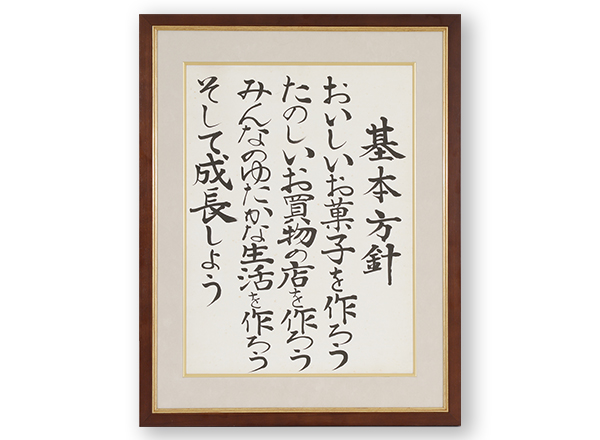 基本方針
おいしいお菓子を作ろう
たのしいお買物の店を作ろう
みんなのゆたかな生活を作ろう
そして成長しよう